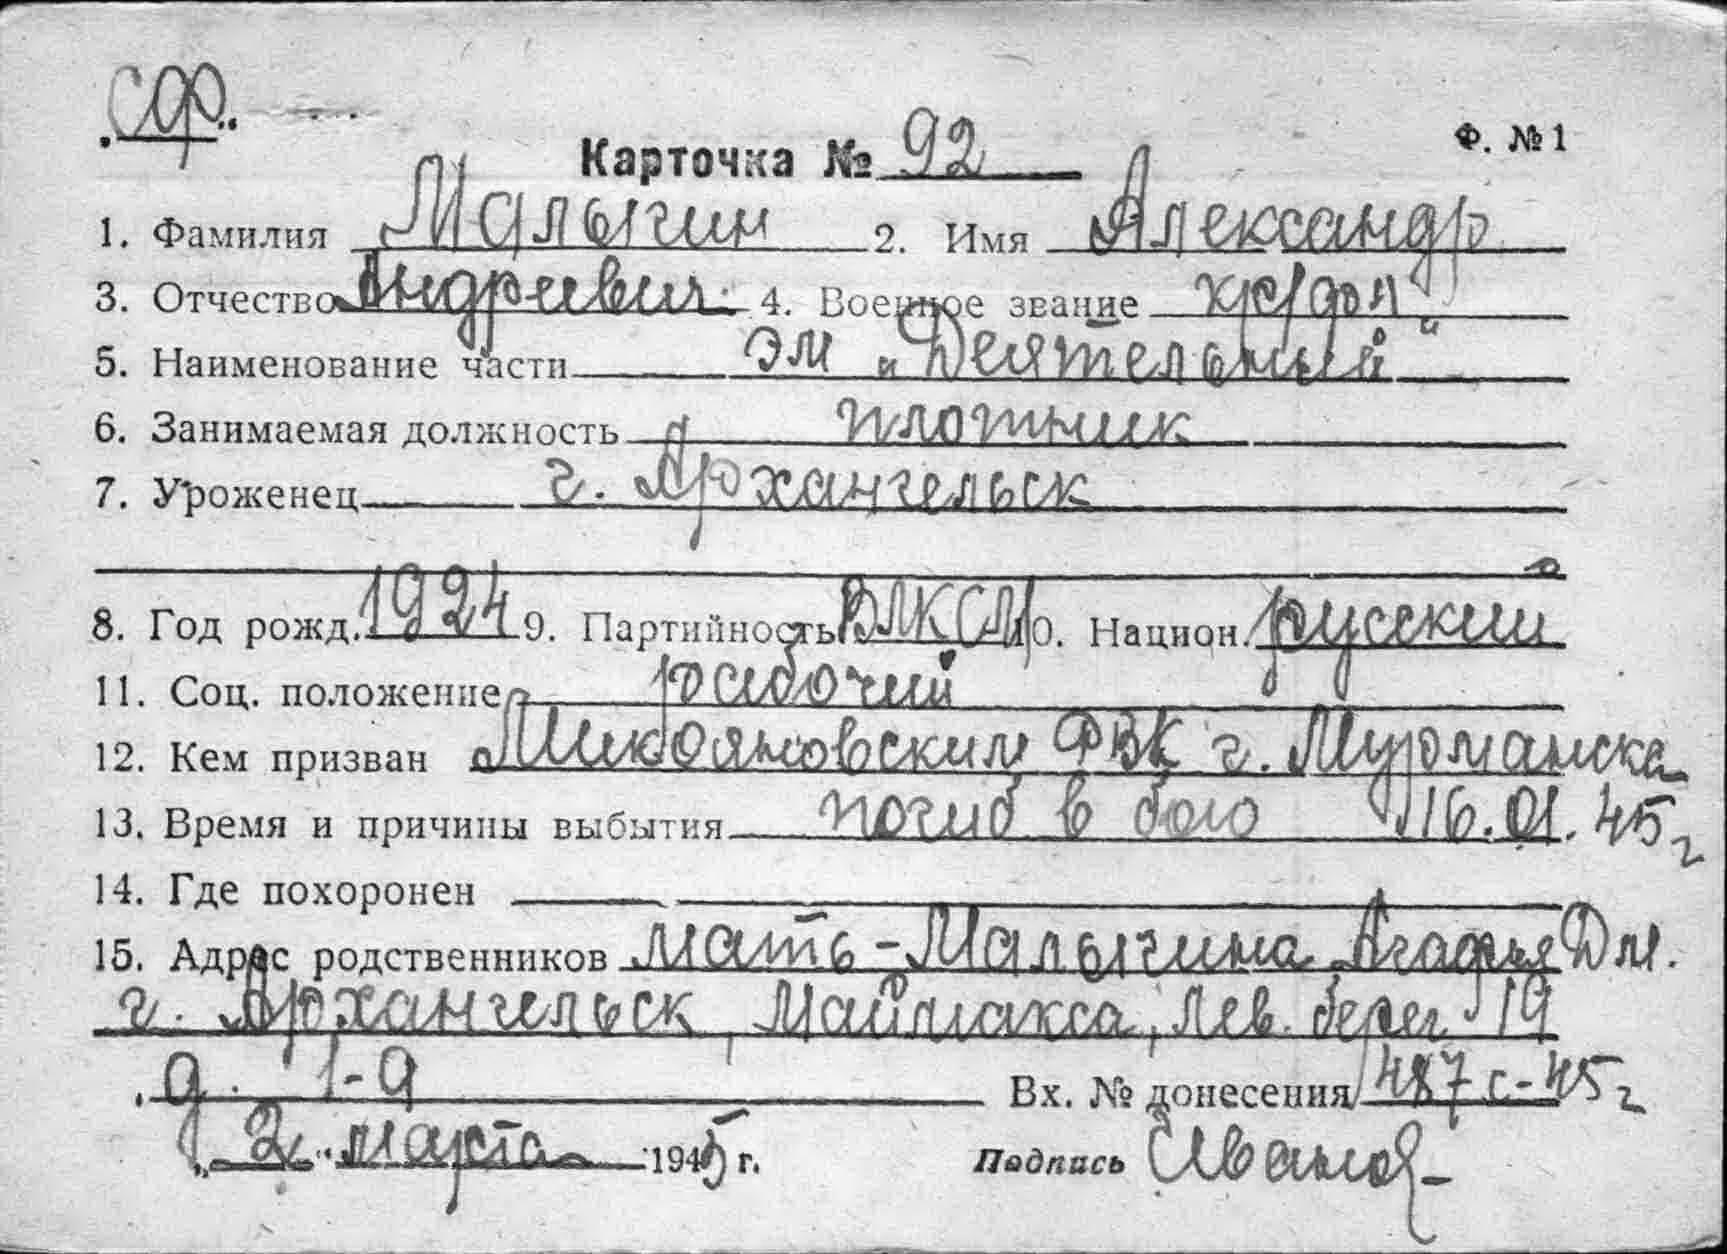 СФ
Ф. №1
Карточка № 92
1. Фамилия Малыгин 2. Имя Александр
3. Отчество Андреевич 4. Военное звание кр/фл
5. Наименование части ЭМ „Деятельный"
6. Занимаемая должность плотник
7. Уроженец г. Архангельск
8. Год рожд. 1924 9. Партийность ВЛКСМ 10. Национ. русский
11. Соц. положение рабочий
12. Кем призван Микояновским РВК г. Мурманска
13. Время и причины выбытия погиб в бою 16.01.45 г
14. Где похоронен
15. Адрес родственников мать - Малыгина Агафья Дм.
г. Архангельск, Маймакса, Лев. берег 19
д. 1-а Вх. № донесения 487 с-45 г
„2" марта 1945 г. Подпись Иванов